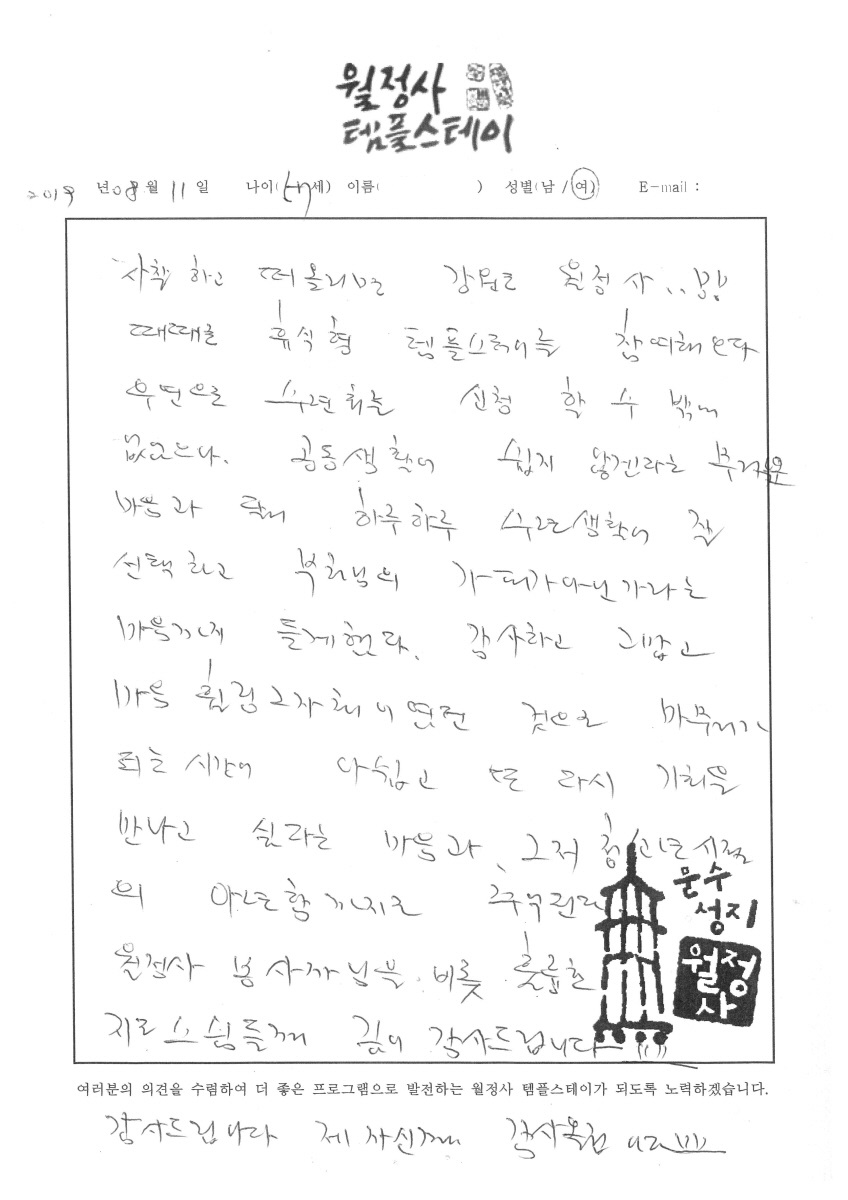 월정사
템플스테이
2019 년 08 월 11 일 나이( 세) 이름( ) 성별(남 / 여) E-mail :
사찰 하고 떠올리면 강원도 월정사..!!
때때로 휴식형 템플스테이를 참여해 오다
우연으로 수련회를 신청 할 수 밖에
없었는다. 공동생활이 쉽지 않겠다라는 무거운
마음과 달리 하루하루 수련생활이 잘
선택하고 부처님의 가피가 아닌가라는
마음까지 들게했다. 감사하고 고맙고
마음 힐링 그자체 이였던 것으로 마무리가
되는 시간이 아쉽고 또 다시 기회를
만나고 싶다라는 마음과, 그저 청소년 시절
의 아련함까지도
월정사 봉사자님을 비롯 훌륭한
지도스님들께 깊이 감사드립니다
문수
성지
월정
사
여러분의 의견을 수렴하여 더 좋은 프로그램으로 발전하는 월정사 템플스테이가 되도록 노력하겠습니다.
감사드립니다 제 자신께